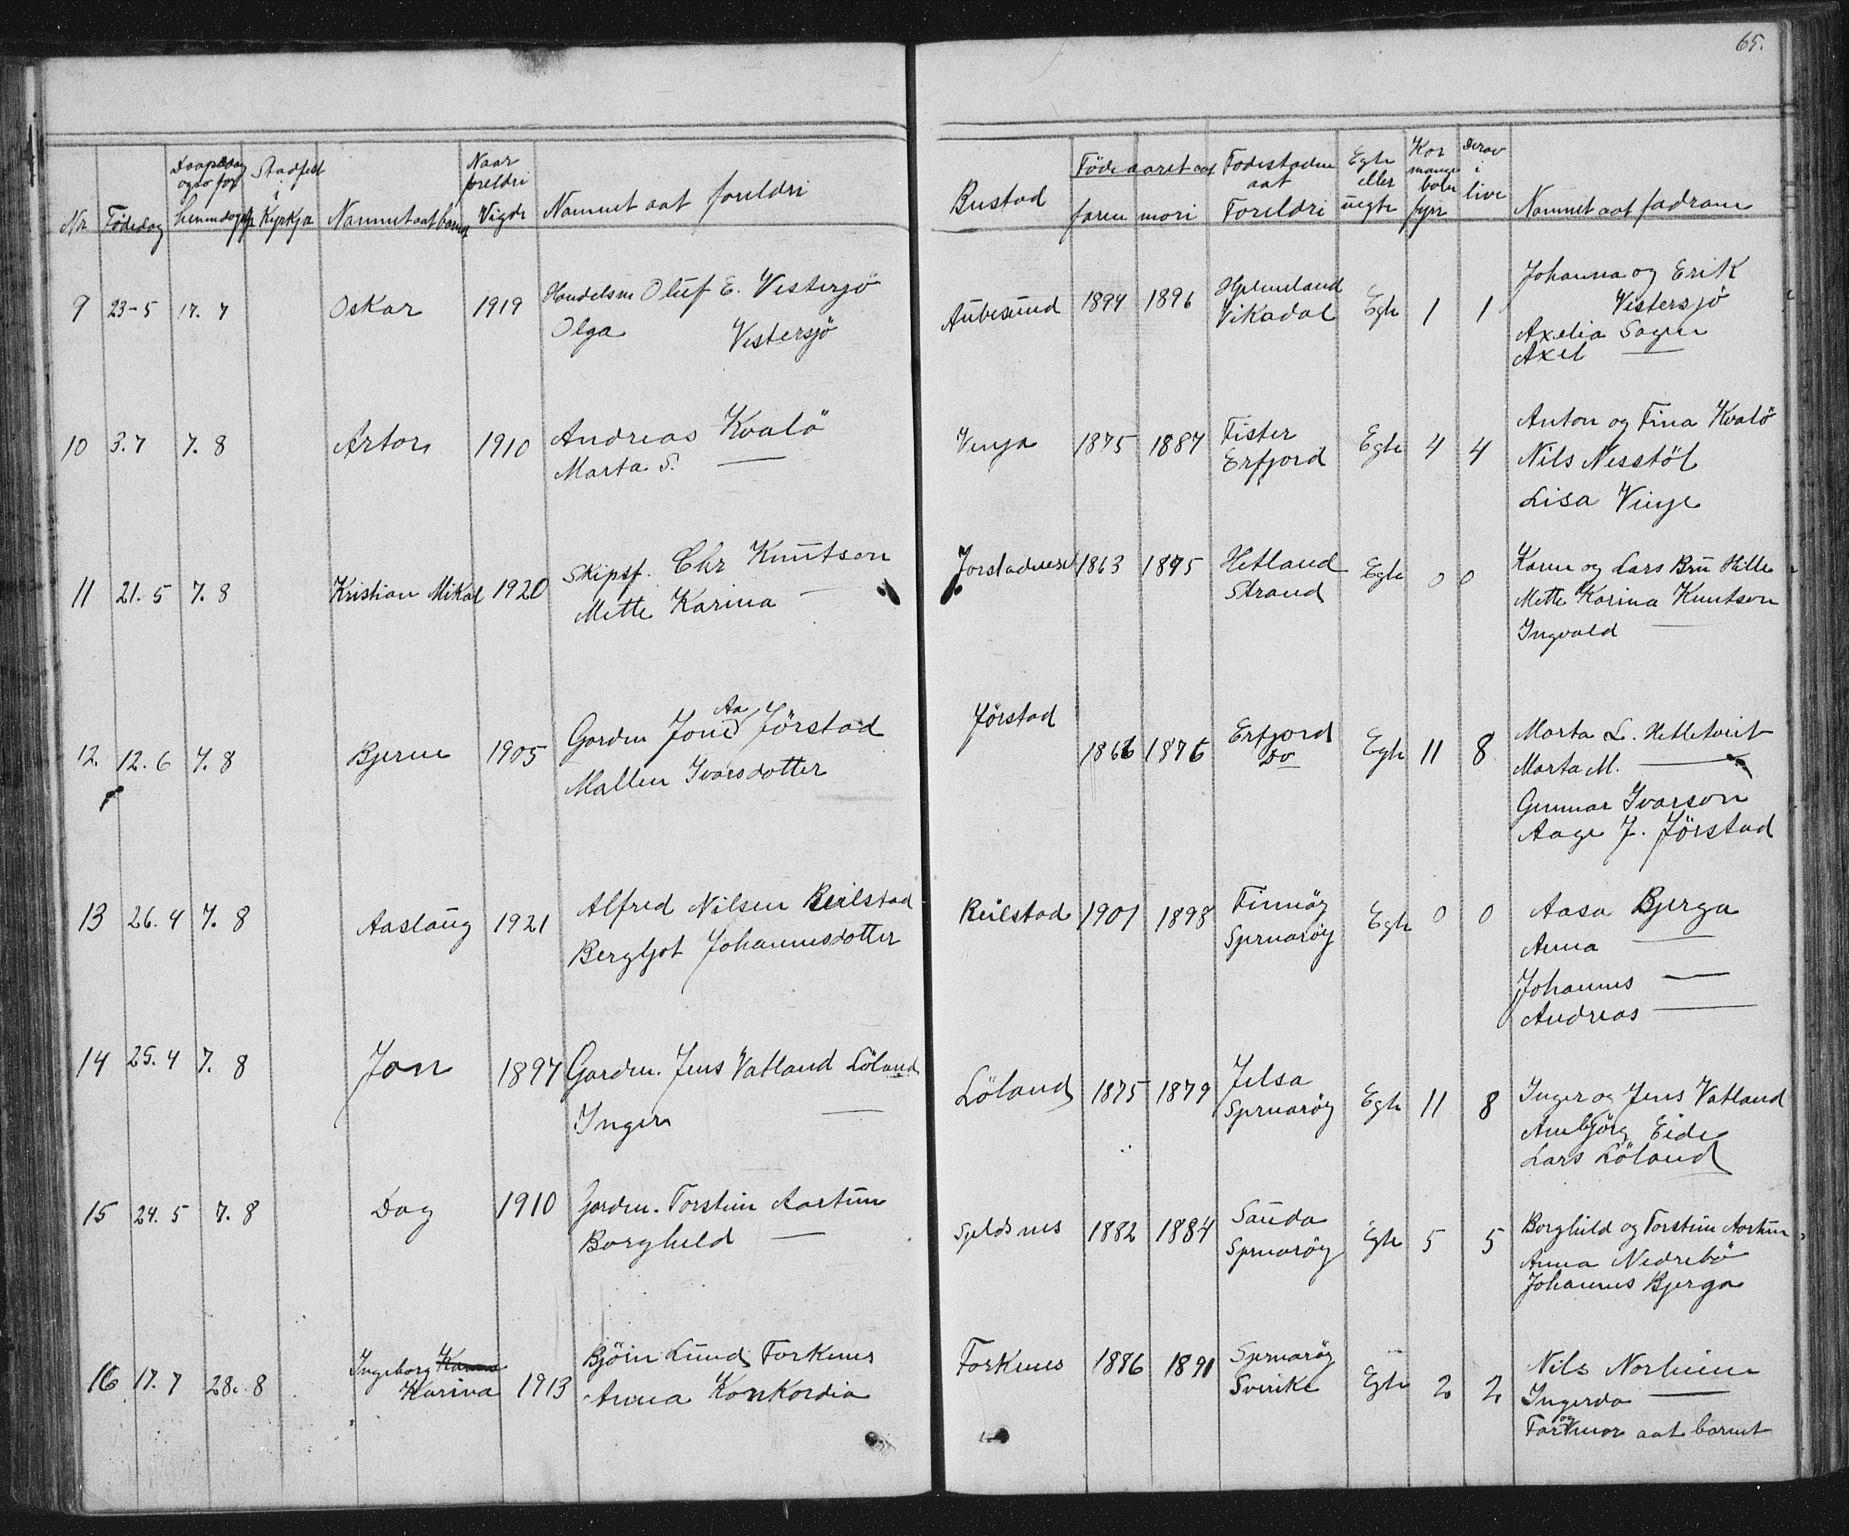 65.
Nr Fødedag Daapsdag Stadfest i Kyrkja Namnet aat barnet Naar foreldri Vigde Namnet aat foreldri
Bustad Fødeaaret aat faren mori Fødestaden aat Foreldri Egte eller uegte Kor mange born fyrr Derav i live Namnet aat fadrane
9 23-5 17. 7 Oskar 1919 Handelsm Oluf E. Vestersjö
Olga Vestersjö
Aubesund 1894 1896 Hjelmeland
Vikadal
Egte 1 1 Johanna og Erik
Vistersjö
Axelia Sagen
Axel —
10 3.7 7. 8 Artor 1910 Andreas Kvalö
Marta S. —
Venja 1875 1887 Fister
Erfjord
Egte 4 4 Anton og Fina Kvalö
Nils Nesstöl
Lisa Vinje
11 21. 5 7. 8 Kristian Mikal 1920 Skipsf. Chr Knutson
Mette Karina —
1863 1895 Hetland
Strand
Egte 0 0 Karen og Lars Bru Hille
Mette Karina Knutson
Ingvald —
12. 12. 6 7. 8 Bjerne 1905 Garden Jone Aa Jörstad
Mallen Ivarsdotter
Jörstad 1866 1876 Erfjord
Do
Egte 11 8 Marta L. Hetletveit
Marta M. —
Gunnar Ivarson
Aage J. Jörstad
13 26. 4 7. 8 Aaslaug 1921 Alfred Nilsen Reilstad
Bergljot Johannesdotter
Reilstad 1901 1898 Finnöy
Sjernaröy
Egte 0 0 Aasa Bjerga
Anna —
Johannes —
Andreas —
14 25. 4 7. 8 Jon 1897 Garden. Jens Vatland Löland
Inger —
Löland 1875 1879 Jelsa
Sjernaröy
Egte 11 8 Inger og Jens Vatland
Ambjörg Eide
Lars Löland
15 24. 5 7. 8 Dag 1910 Garden. Torstein Aartun
Borghild —
Sjeldsnes 1882 1884 Sauda
Sjernaröy
Egte 5 5 Borghild og Torstein Aartun
Anna Nedrebö
Johannes Bjerga
16 17. 7 28. 8 Ingeborg
Karina
1913 Björn Lund Forknes
Anna Konkordia
Forknes 1886 1891 Sjernaröy
Sverike
Egte 2 2 Nils Norheim
Ingerda —
og
aat barnet